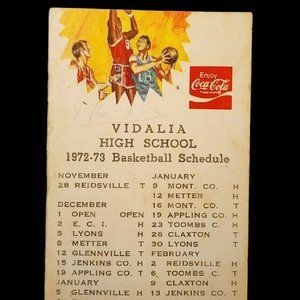 Enjoy
Coca-Cola
VIDALIA
HIGH SCHOOL
1972-73 Basketball Schedule
NOVEMBER
28 REIDSVILLE T
DECEMBER
1 OPEN OPEN
2 E. C. I. H
5 LYONS H
8 METTER T
12 GLENNVILLE T
15 JENKINS CO. H
19 APPLING CO. T
JANUARY
5 GLENNVILLE H
JANUARY
9 MONT. CO. H
12 METTER H
16 MONT. CO. T
19 APPLING CO. H
23 TOOMBS C. H
26 CLAXTON H
30 LYONS T
FEBRUARY
2 REIDSVILLE H
6 TOOMBS C. T
9 CLAXTON H
13 JENKINS CO. T